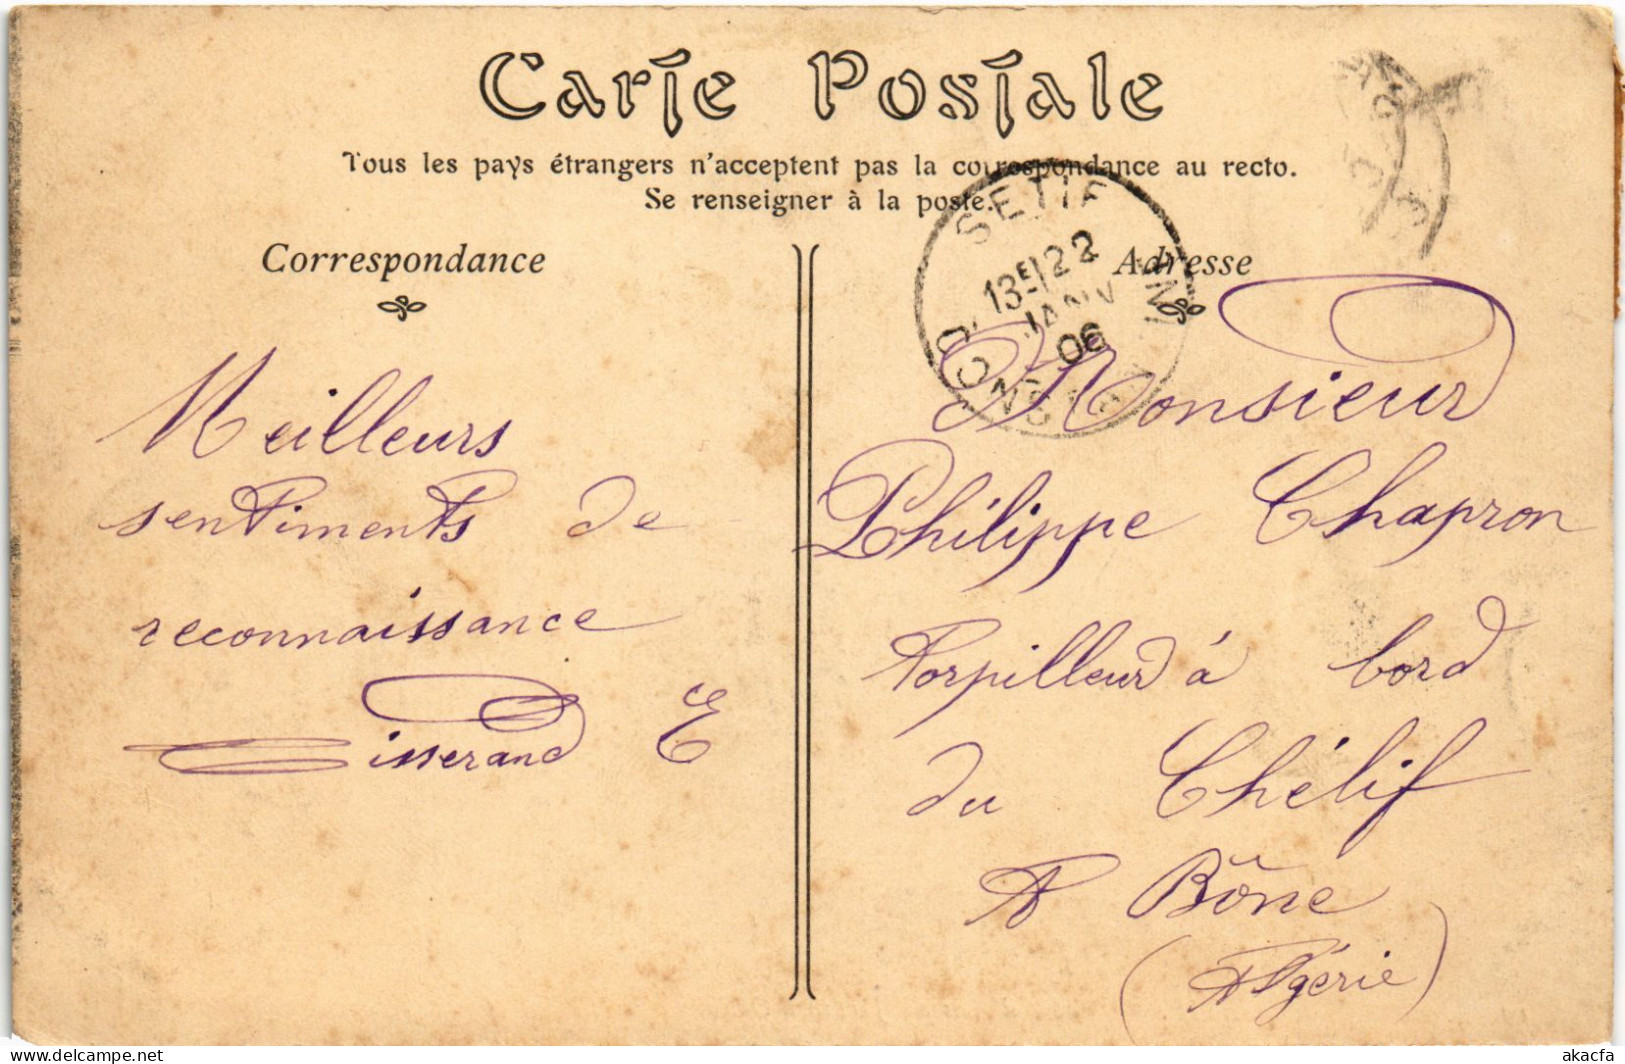 Carte Postale
Tous les pays étrangers n'acceptent pas la correspondance au recto.
Se renseigner à la poste.
Correspondance
Meilleurs
sentiments de
reconnaissance
Tisserand E
SETIF
13E/22
JANV
06
CONSTANTINE
Adresse
Monsieur
Philippe Chapron
Torpilleur à bord
du Chélif
A Bône
(Algérie)
akacfa
delcampe.net